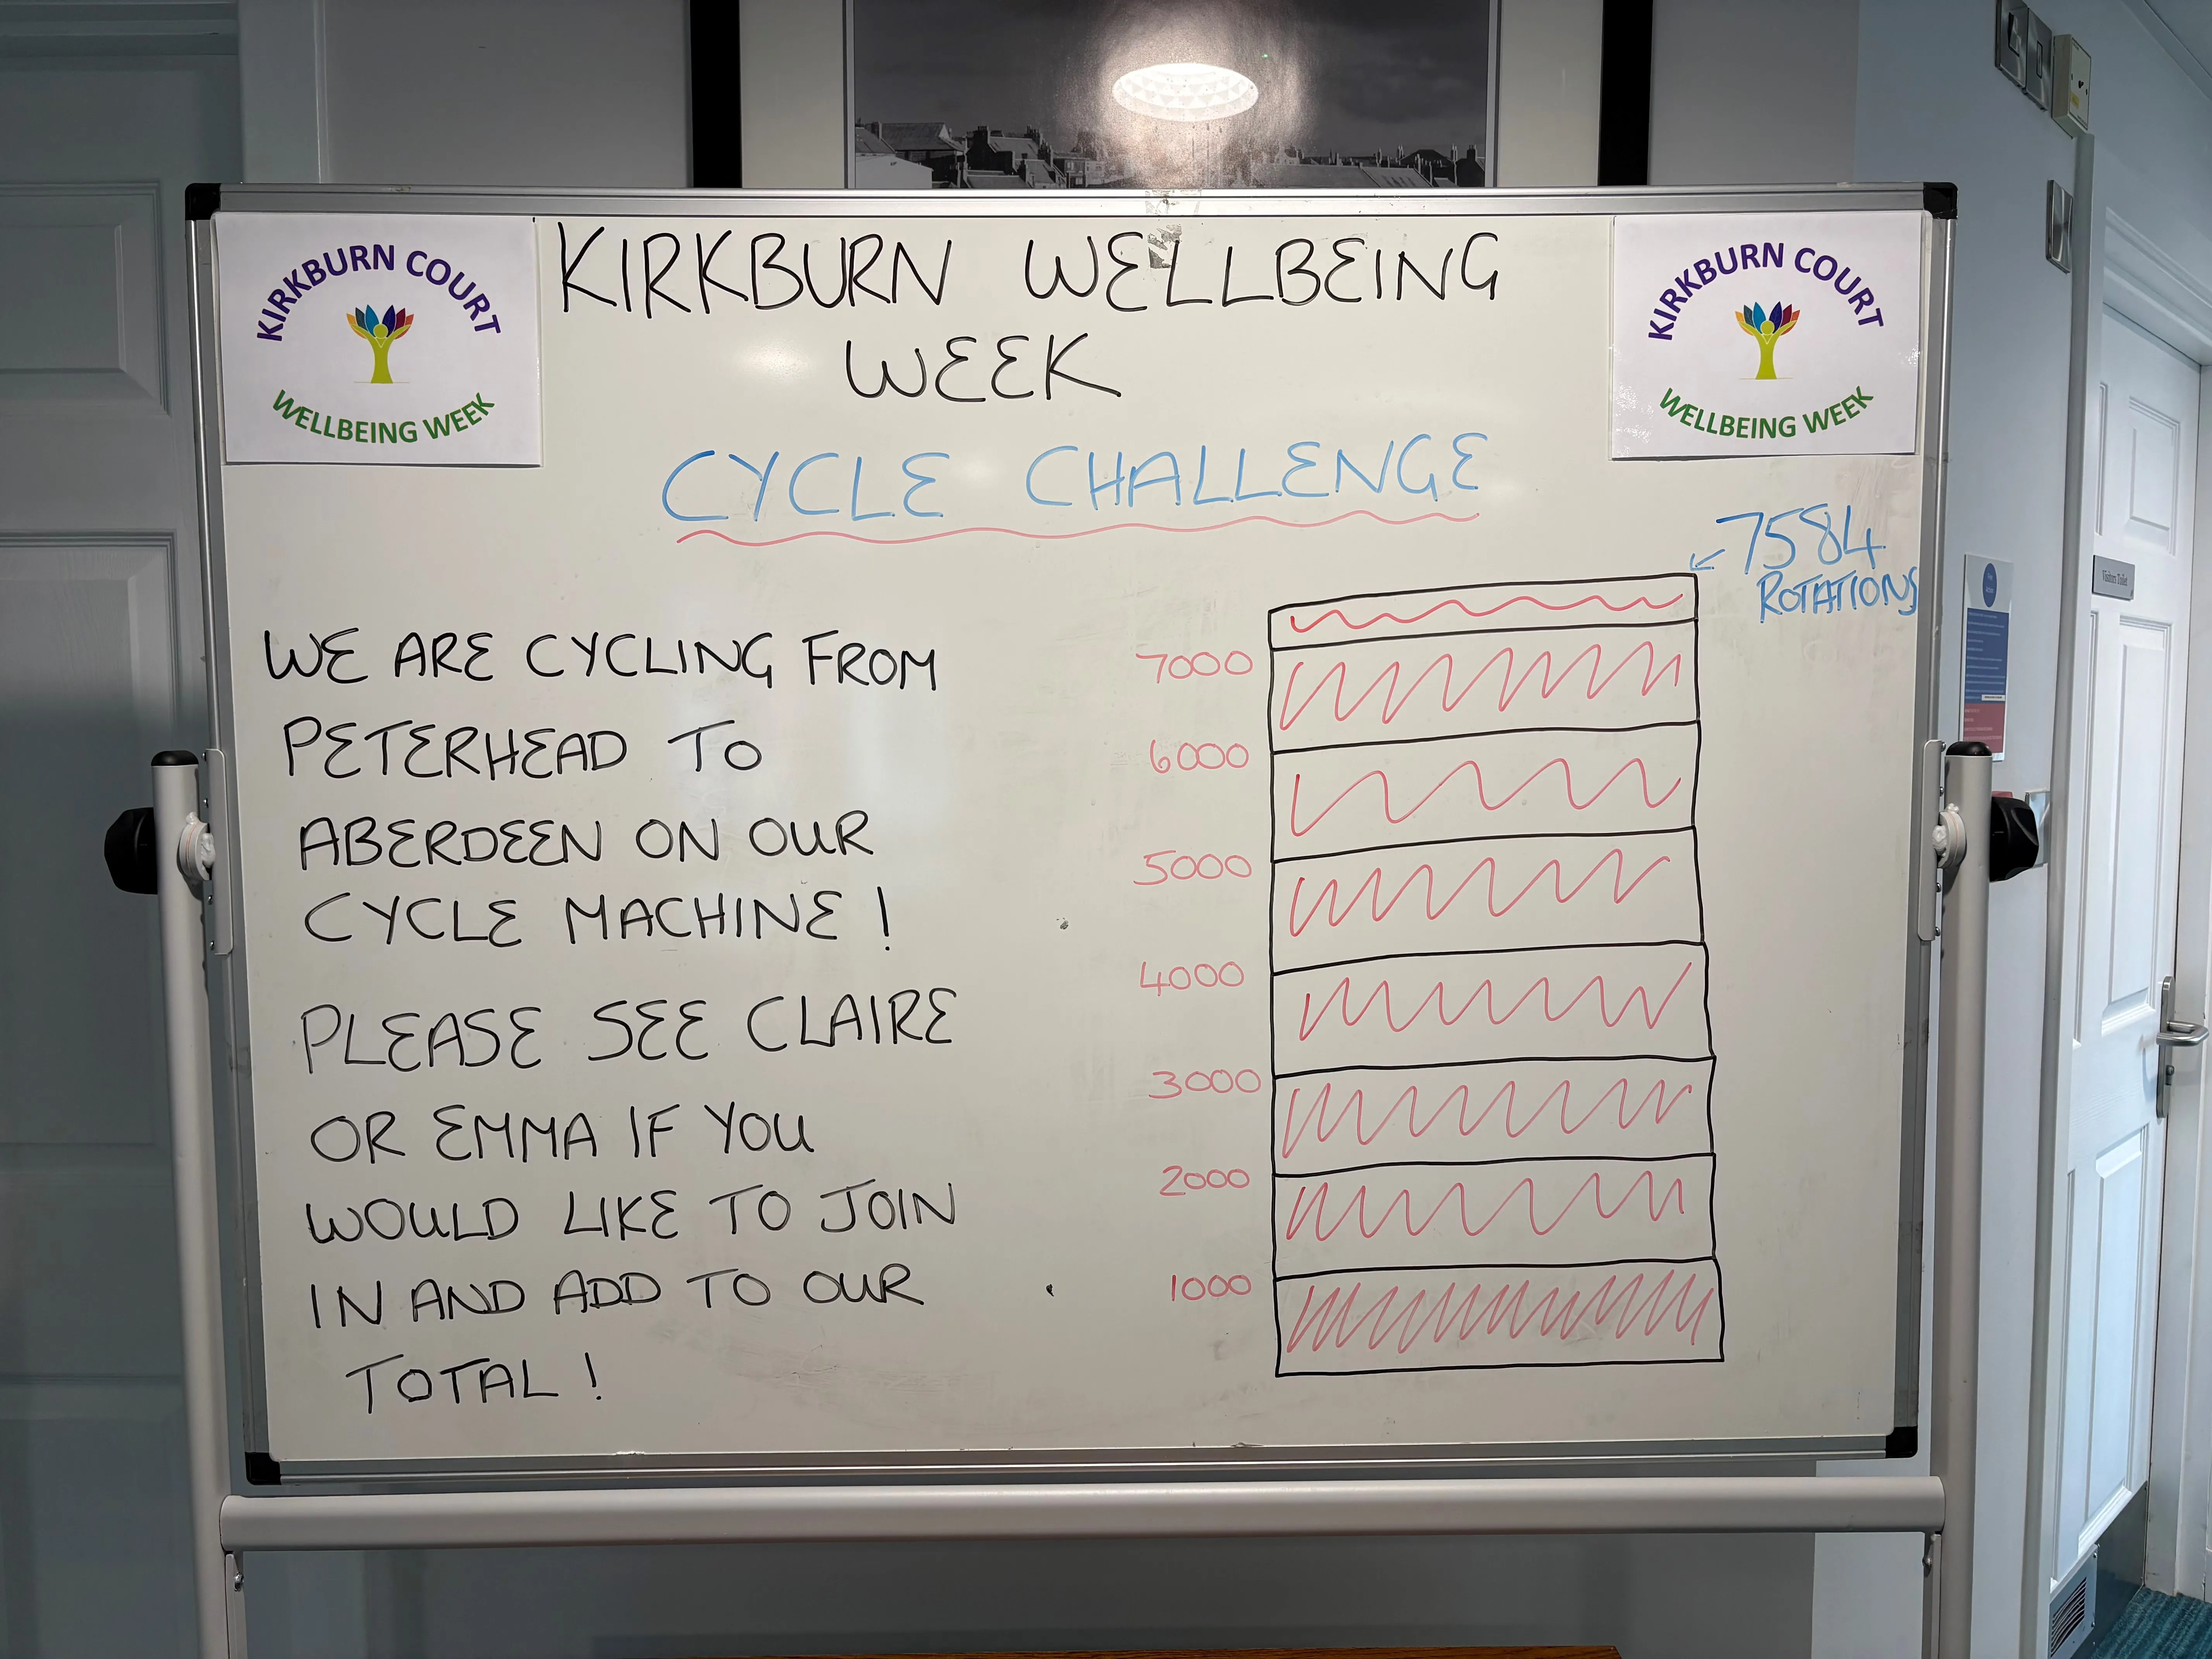 KIRKBURN COURT
WELLBEING WEEK
KIRKBURN WELLBEING
WEEK
KIRKBURN COURT
WELLBEING WEEK
CYCLE CHALLENGE
7584
ROTATIONS
WE ARE CYCLING FROM
PETERHEAD TO
ABERDEEN ON OUR
CYCLE MACHINE!
PLEASE SEE CLAIRE
OR EMMA IF YOU
WOULD LIKE TO JOIN
IN AND ADD TO OUR
TOTAL!
7000
6000
5000
4000
3000
2000
1000
Visitors Toilet